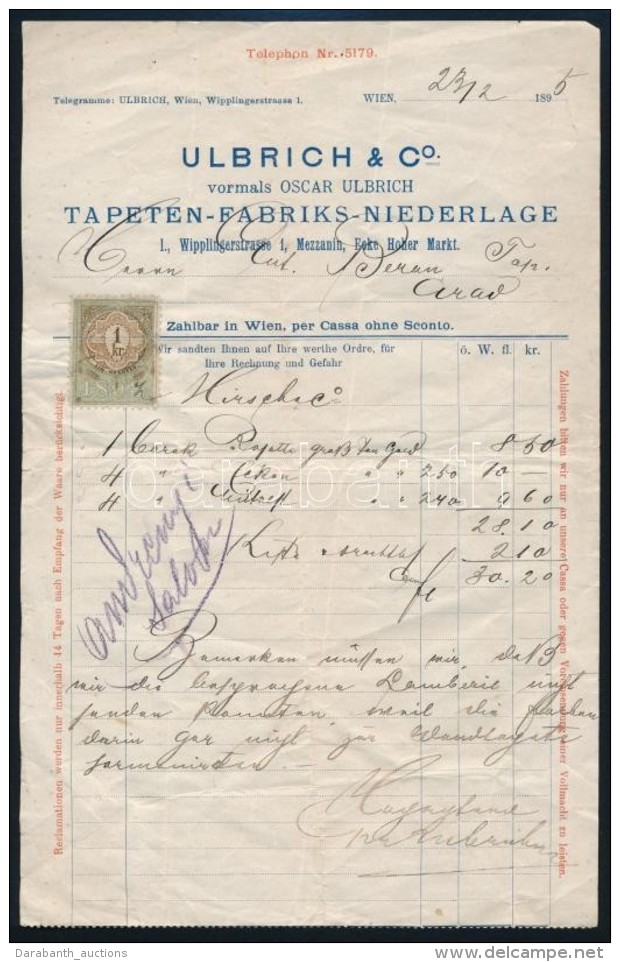 Telephon Nr. 5179.
Telegramme: ULBRICH, Wien, Wipplingerstrasse 1.
WIEN, 23/2 1895
ULBRICH & Co.
vormals OSCAR ULBRICH
TAPETEN-FABRIKS-NIEDERLAGE
I., Wipplingerstrasse 1, Mezzanin, Ecke Hoher Markt.
Herrn Ant. Beran Tap.
Arad
Zahlbar in Wien, per Cassa ohne Sconto.
1 kr.
Wir sandten Ihnen auf Ihre werthe Ordre, für
Ihre Rechnung und Gefahr
ö. W. fl. kr.
Hirsch & Co
1 Rosette groß Gold 8 50
4 " Ecken " " 2 50 10 —
4 " " " 2 40 9 60
28. 10
2 10
30. 20
Bemerken müssen wir, daß
wir die besprochene Lamberie nicht
senden konnten, weil die Farben
darin gar nicht zur Wandtapete
harmonirten. —
Reclamationen werden nur innerhalb 14 Tagen nach Empfang der Waare berücksichtigt.
Zahlungen bitten wir nur an unsere Cassa oder gegen Vorweisung einer Vollmacht zu leisten.
darabanth
Darabanth_auctions